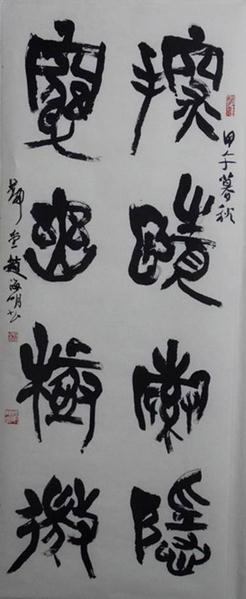 甲午暮秋
探賾索隱
窮幽極微
堂趙海明书